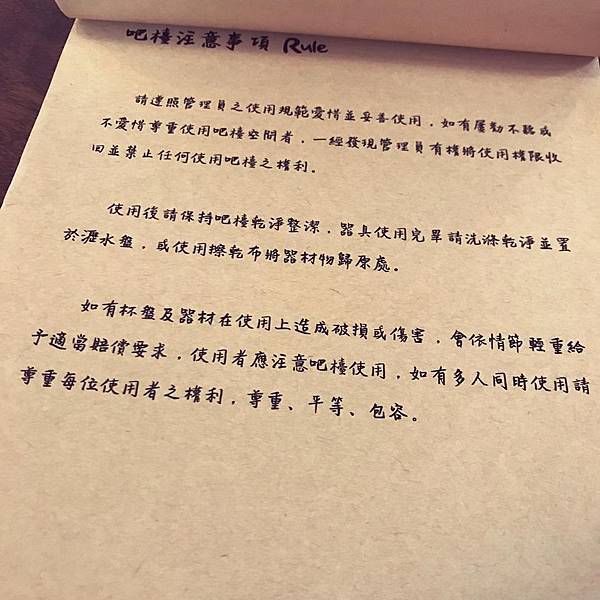 吧檯注意事項 Rule
請遵照管理員之使用規範愛惜並妥善使用，如有屢勸不聽或
不愛惜尊重使用吧檯空間者，一經發現管理員有權將使用權限收
回並禁止任何使用吧檯之權利。
使用後請保持吧檯乾淨整潔，器具使用完畢請洗滌乾淨並置
於瀝水盤，或使用擦乾布將器材物歸原處。
如有杯盤及器材在使用上造成破損或傷害，會依情節輕重給
予適當賠償要求，使用者應注意吧檯使用，如有多人同時使用請
尊重每位使用者之權利，尊重、平等、包容。